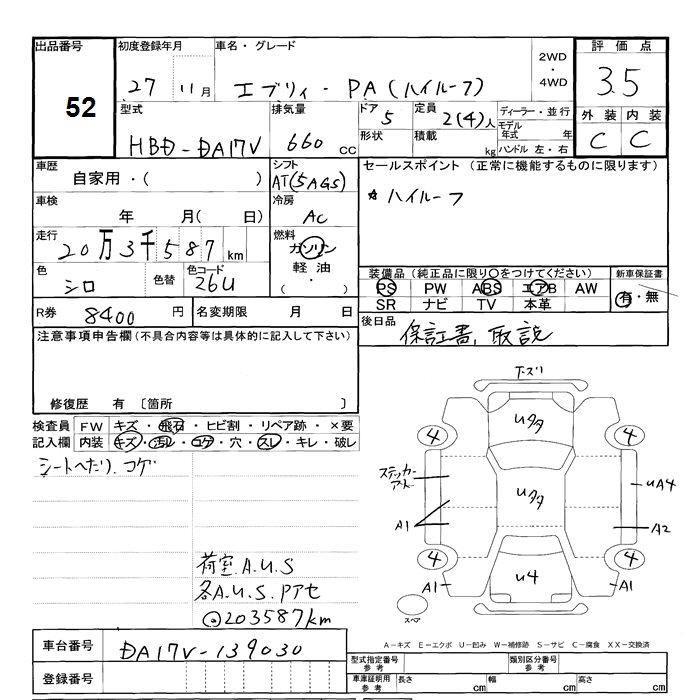 出品番号 初度登録年月 車名・グレード 評価点
52 27 11月 エブリィ・PA(ハイルーフ) 2WD・4WD 3.5
型式 排気量 ドア 定員 ディーラー・並行 外装 内装
HBD-DA17V 660cc 5 2(4)人 モデル年式 年 C C
形状 積載 kg ハンドル 左・右
車歴 シフト セールスポイント (正常に機能するものに限ります)
自家用・( ) AT(5AGS) ★ハイルーフ
車検 冷房
年 月( 日) AC
走行 燃料
20万3千587km ガソリン・軽油( ・ )
色 色替 色コード 装備品(純正品に限り○をつけてください) 新車保証書
シロ 26U PS PW ABS エアB AW 有・無
SR ナビ TV 本革
R券 8400円 名変期限 月 日 後日品
保証書、取説
注意事項申告欄(不具合内容等は具体的に記入して下さい)
修復歴 有 〔箇所 〕
検査員 FW キズ・飛石・ヒビ割・リペア跡・×要
記入欄 内装 キズ・汚レ・コゲ・穴・スレ・キレ・破レ
シートへたり、コゲ
荷室A.U.S
各A.U.S.Pアセ
◎203587km
下ズリ
Uタタ
4 4
ステッカーアト Uタタ UA4
A1 A2
4 4
A1 U4 A1
スペア
A-キズ E-エクボ U-凹み W-補修跡 S-サビ C-腐食 XX-交換済
車台番号 DA17V-139030
登録番号
型式指定番号 参考 類別区分番号 参考
車庫証明用 参考 長さ cm 幅 cm 高さ cm